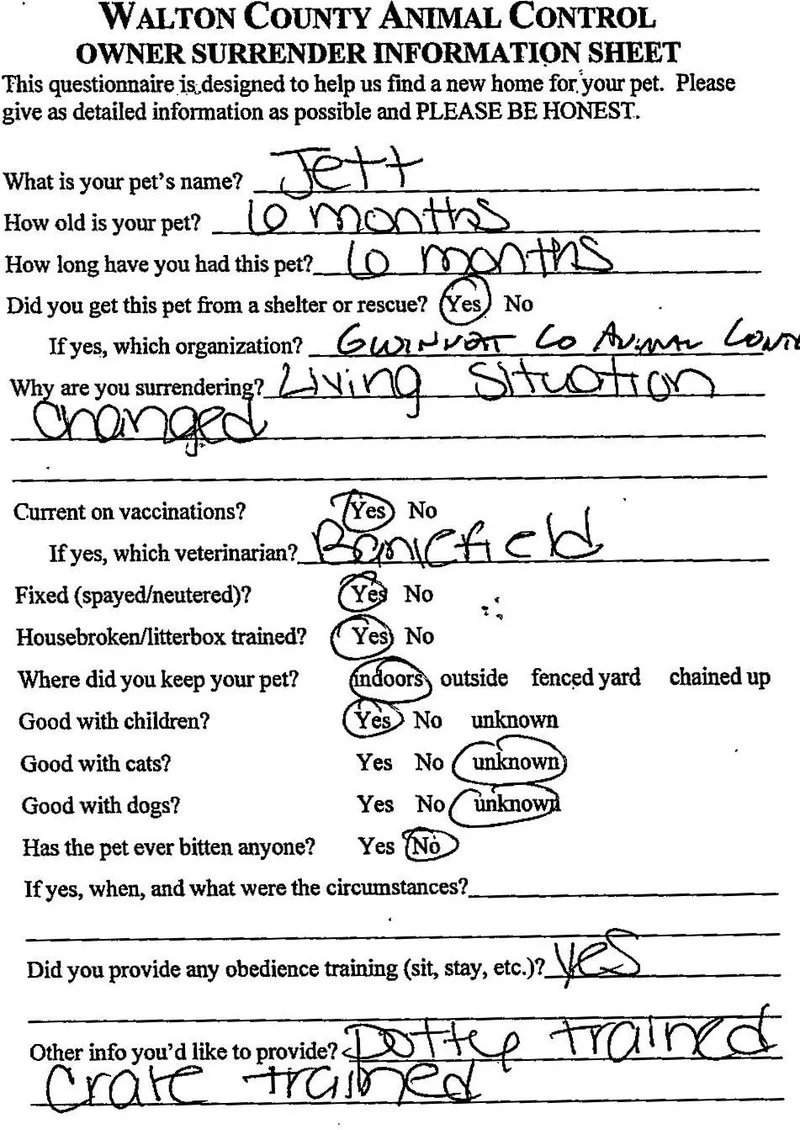 WALTON COUNTY ANIMAL CONTROL
OWNER SURRENDER INFORMATION SHEET
This questionnaire is designed to help us find a new home for your pet. Please
give as detailed information as possible and PLEASE BE HONEST.
What is your pet's name? Jett
How old is your pet? 10 months
How long have you had this pet? 10 months
Did you get this pet from a shelter or rescue? Yes No
If yes, which organization? GWINNETT CO ANIMAL CONTR
Why are you surrendering? Living situation
changed
Current on vaccinations? Yes No
If yes, which veterinarian? Benefield
Fixed (spayed/neutered)? Yes No
Housebroken/litterbox trained? Yes No
Where did you keep your pet? indoors outside fenced yard chained up
Good with children? Yes No unknown
Good with cats? Yes No unknown
Good with dogs? Yes No unknown
Has the pet ever bitten anyone? Yes No
If yes, when, and what were the circumstances?
Did you provide any obedience training (sit, stay, etc.)? yes
Other info you'd like to provide? Potty trained
Crate trained